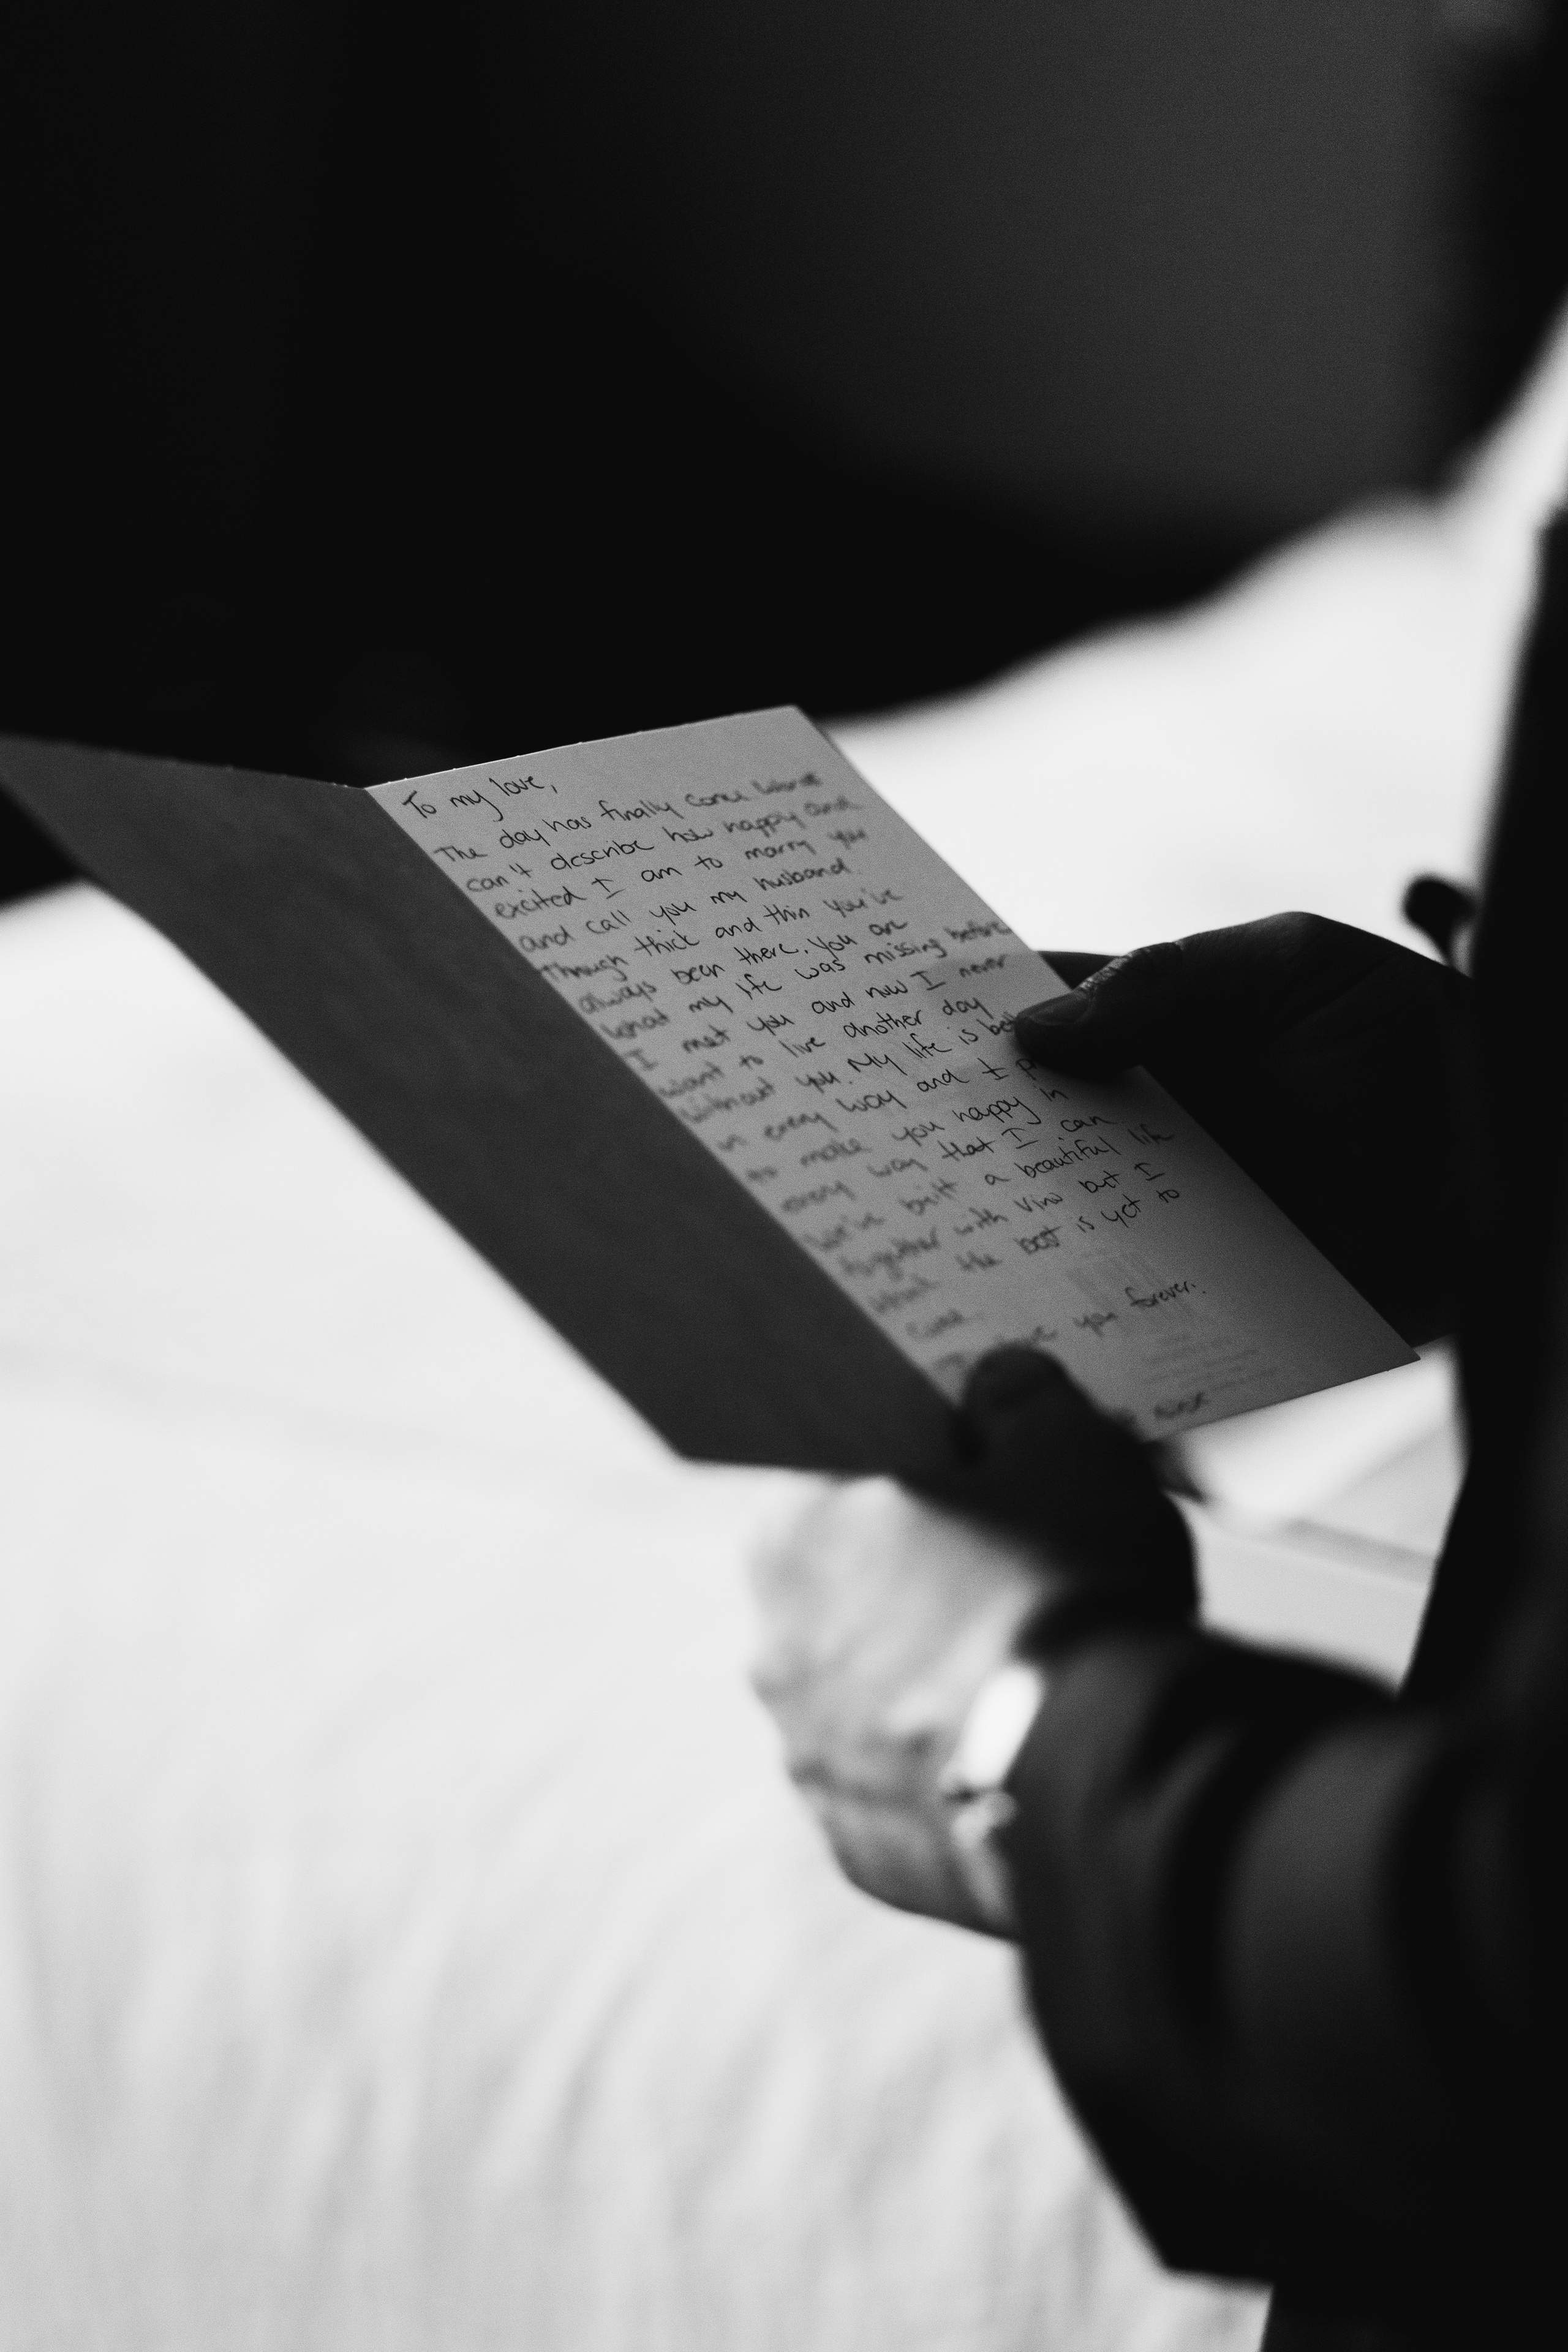 To my love,
The day has finally come
can't describe how happy and
excited I am to marry you
and call you my husband.
Through thick and thin you've
always been there. You are
what my life was missing before
I met you and now I never
want to live another day
without you. My life is
in every way and I
to make you happy in
every way that I can
We've built a beautiful life
together with Vino but I
think the best is yet to
come.
I you forever.